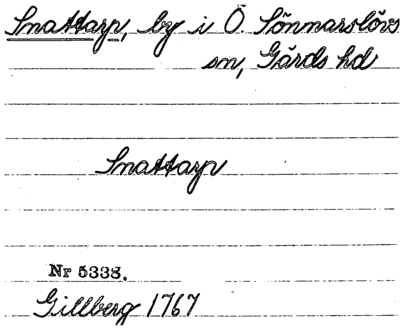 Snattarp, by i Ö. Sönnarslövs
sn, Gärds hd
Snattarp
Nr 5338.
Gillberg 1767